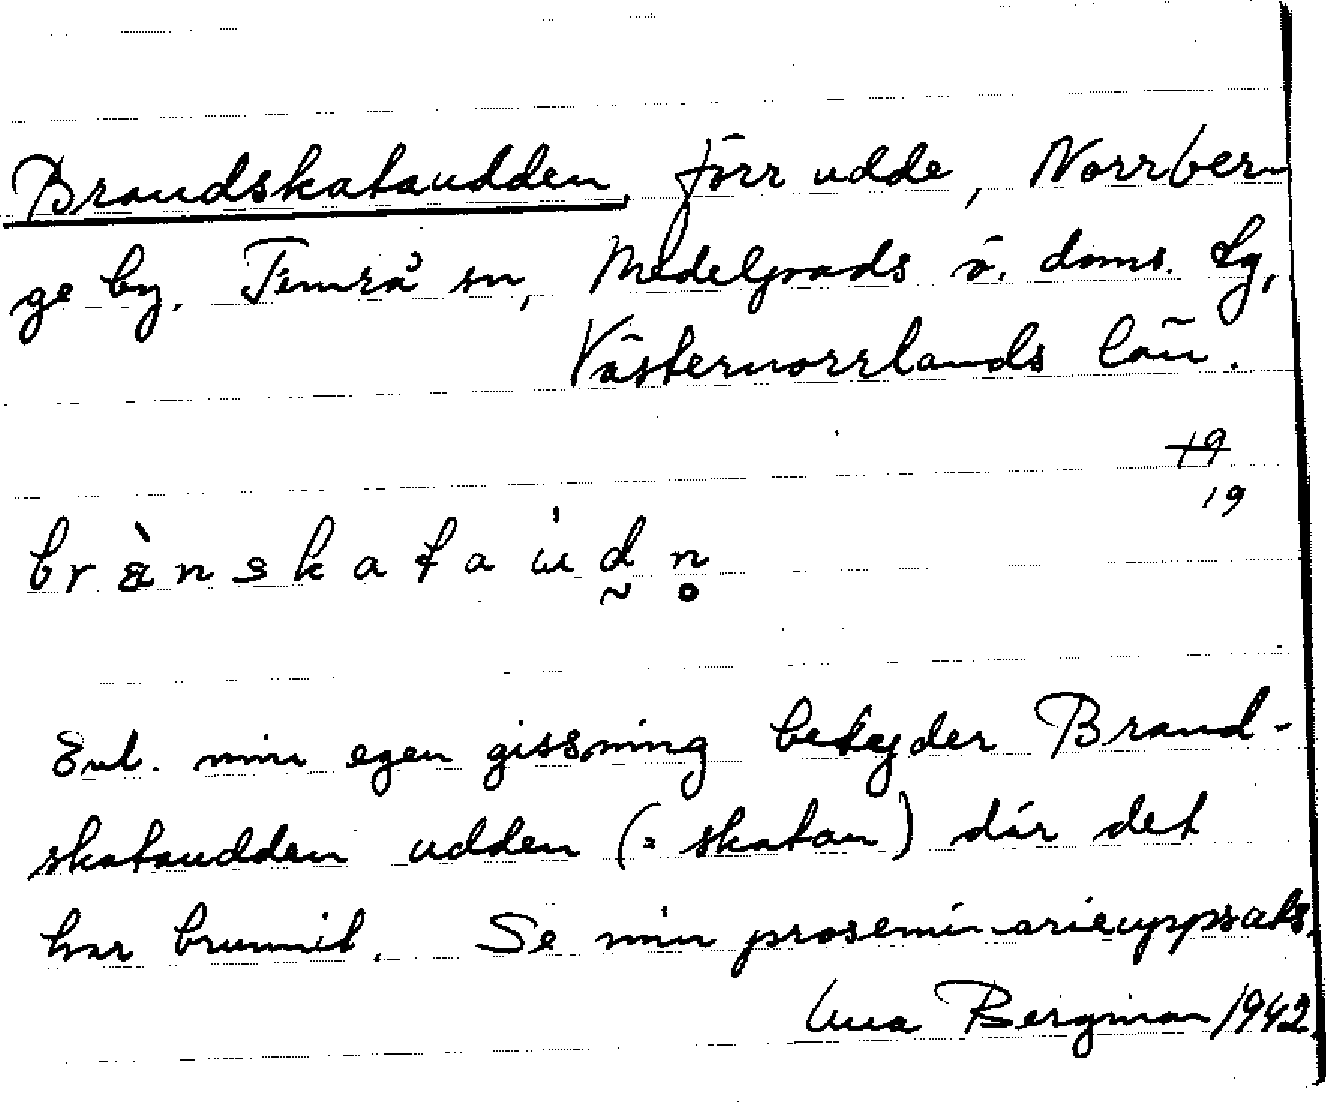 Brandskataudden, förr udde, Norrber-
ge by. Timrå sn, Medelpads ö. doms. tg,
Västernorrlands län.
19
19
brànskataùdn̥
Enl. min egen gissning betyder Brand-
skataudden udden (= skatan) där det
har brunnit. Se min proseminarieuppsats.
Bergman 1942.